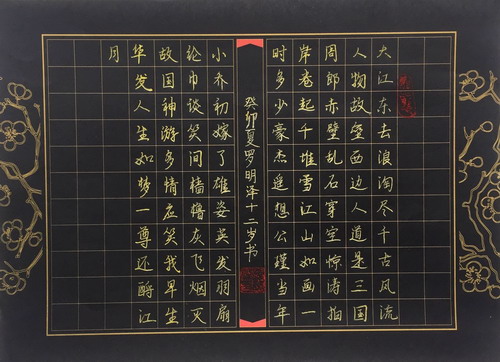 大江东去浪淘尽千古风流
人物故垒西边人道是三国
周郎赤壁乱石穿空惊涛拍
岸卷起千堆雪江山如画一
时多少豪杰遥想公瑾当年
小乔初嫁了雄姿英发羽扇
纶巾谈笑间樯橹灰飞烟灭
故国神游多情应笑我早生
华发人生如梦一尊还酹江
月
癸卯夏罗明泽十二岁书